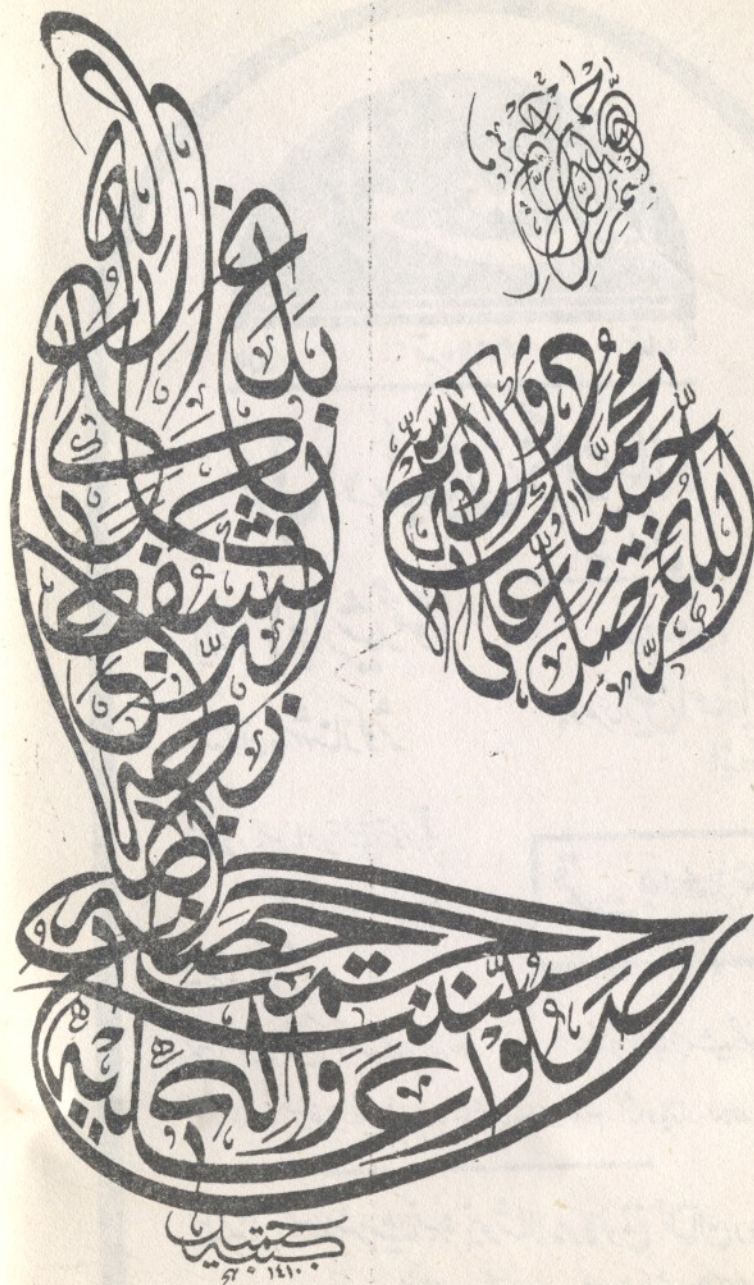 اللهم صل على حبيبك محمد وآله وسلم
بلغ العلى بكماله
كشف الدجى بجماله
حسنت جميع خصاله
صلوا عليه وآله
كتبه
١٤١٠